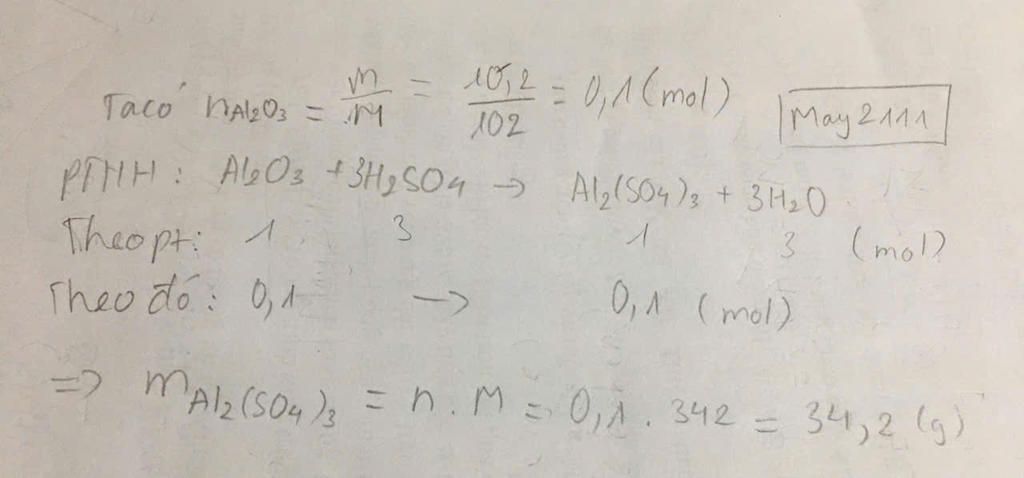 Ta có nAl2O3 = m/M = 10,2/102 = 0,1 (mol)
May2111
PTHH: Al2O3 + 3H2SO4 → Al2(SO4)3 + 3H2O
Theo pt: 1 3 1 3 (mol)
Theo đó: 0,1 → 0,1 (mol)
=> mAl2(SO4)3 = n . M = 0,1 . 342 = 34,2 (g)